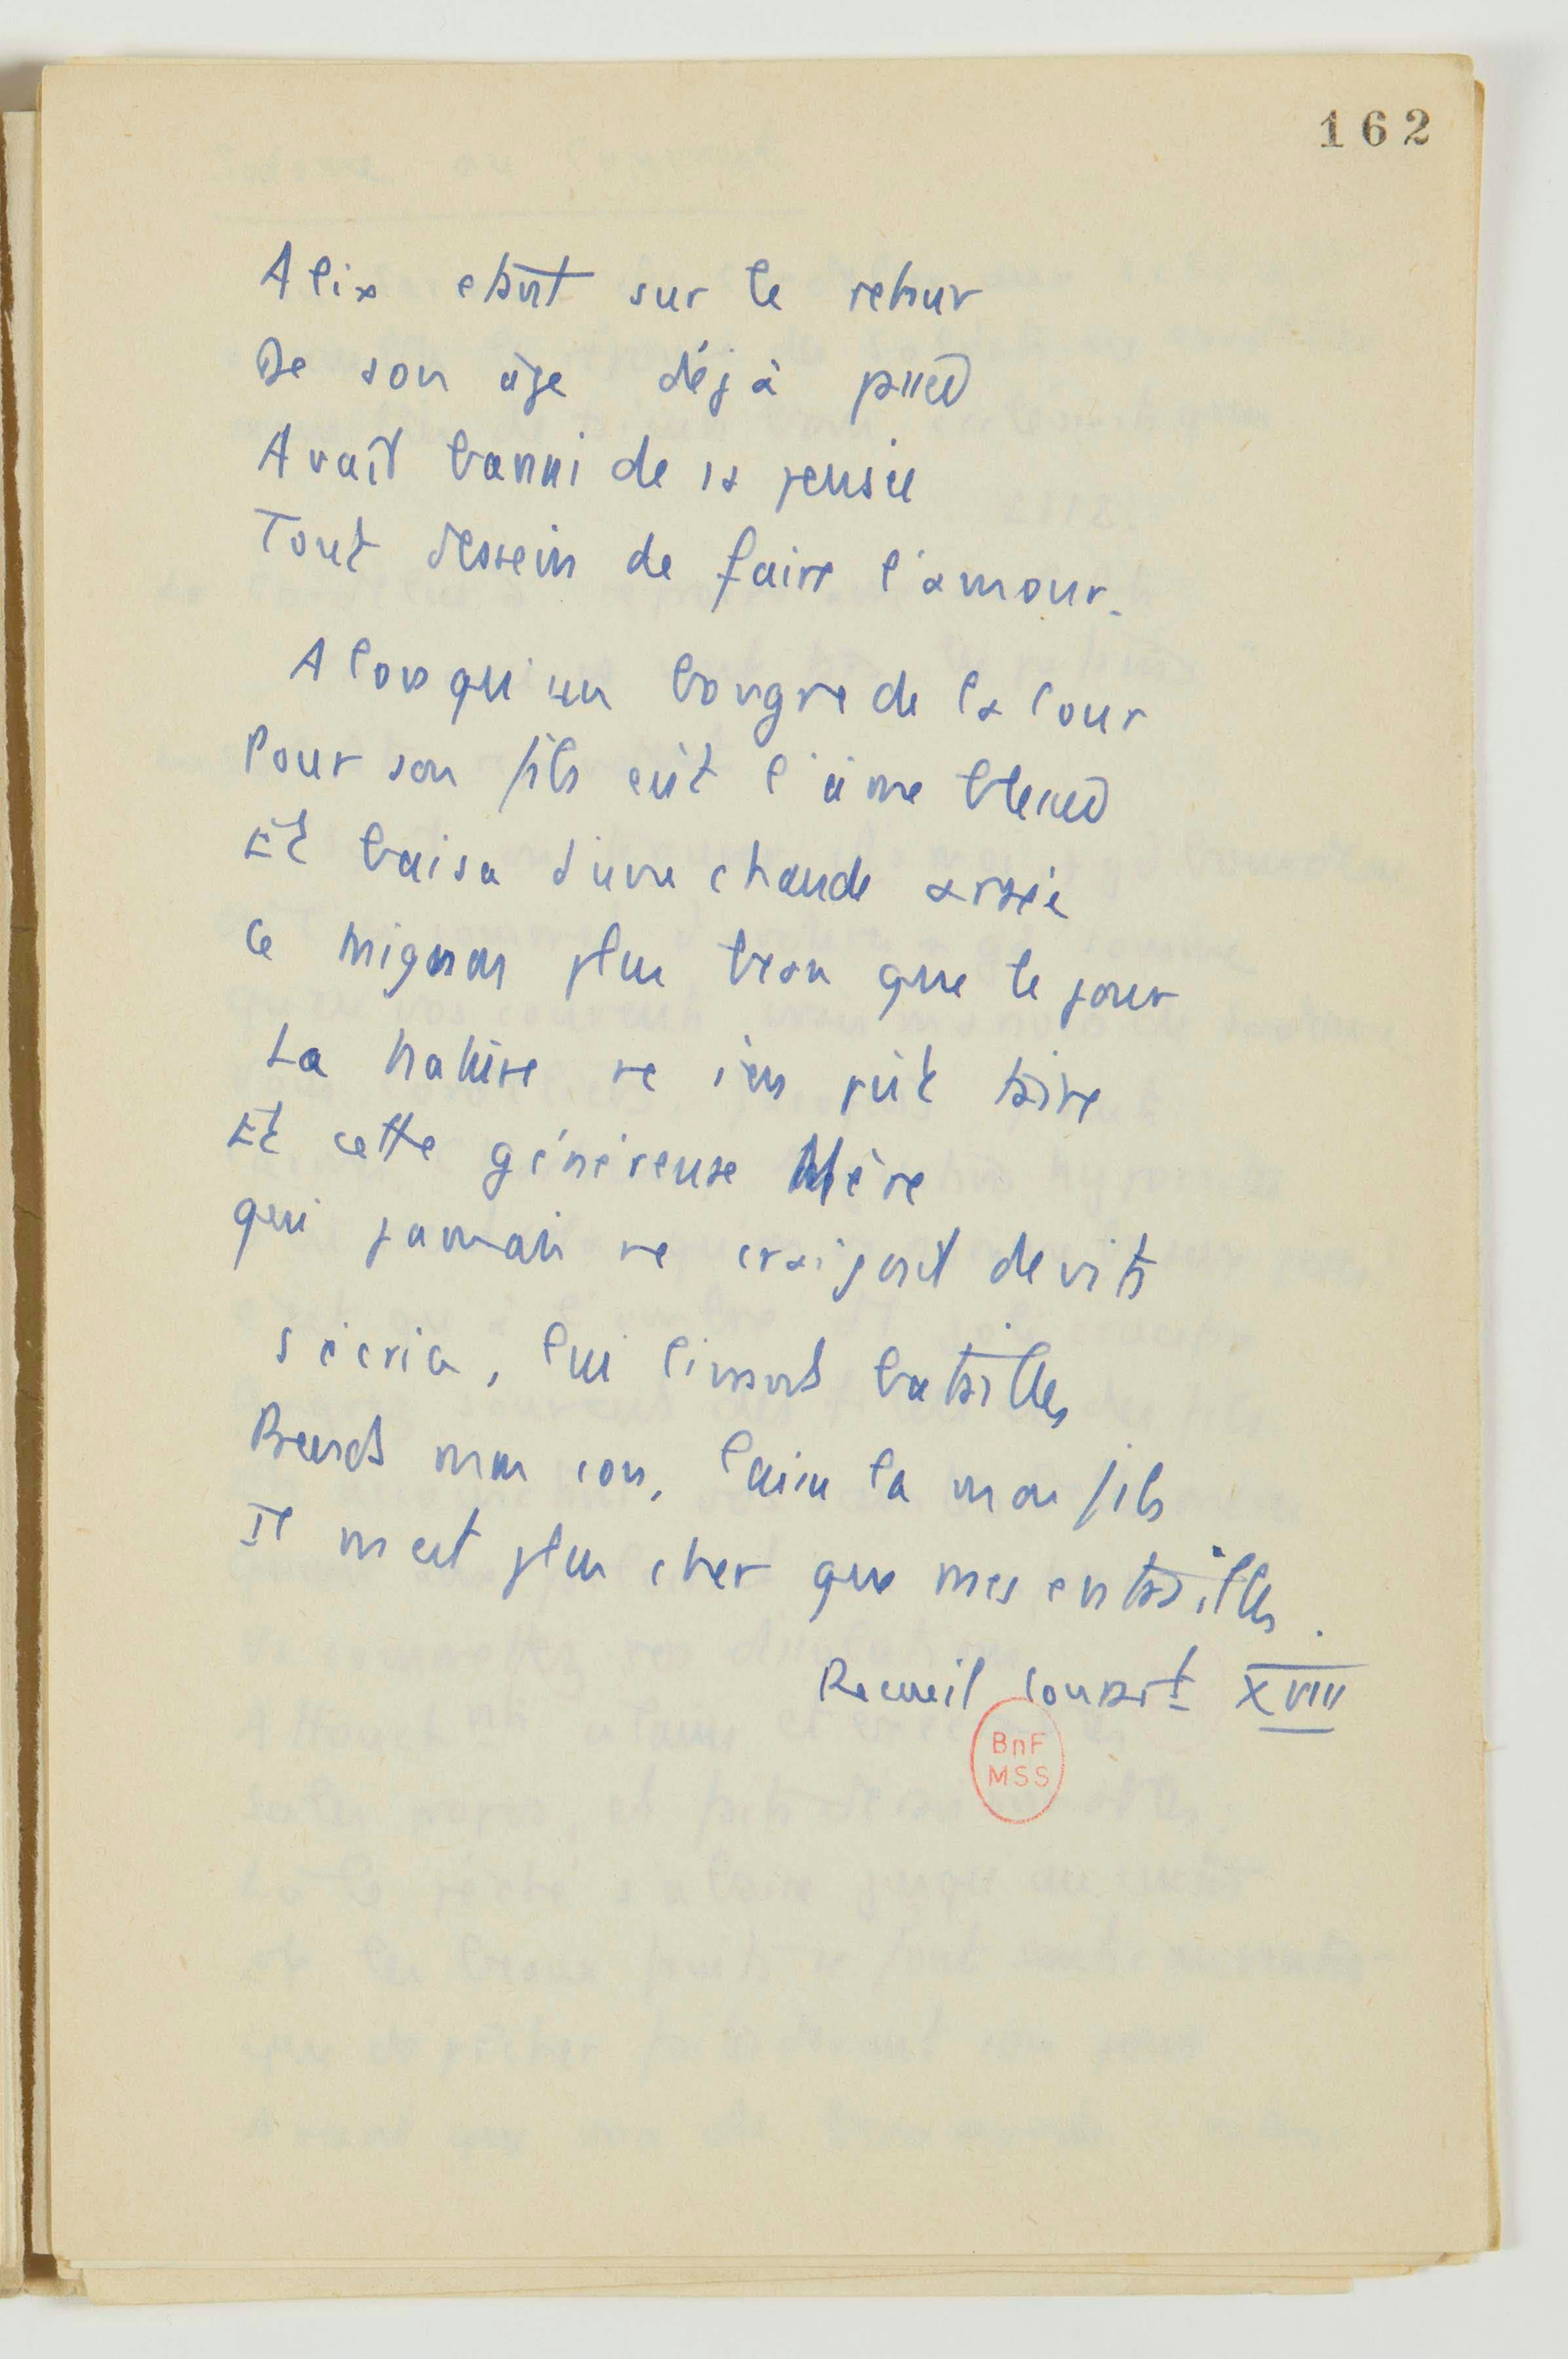 162
Alix était sur le retour
De son âge déjà passé
Avait banni de sa pensée
Tout dessein de faire l'amour.
Alors qu'un bougre de la Cour
Pour son fils eût l'âme blessée
Et baisa d'une chaude
Ce mignon plus beau que le jour
La nature ne s'en pût taire
Et cette généreuse Mère
qui jamais ne craignait de vits
S'écria, lui livrant batailles
Prends mon con, laisse la mon fils
Il m'est plus cher que mes entrailles.
Recueil Conrart XVIII
BnF
MSS